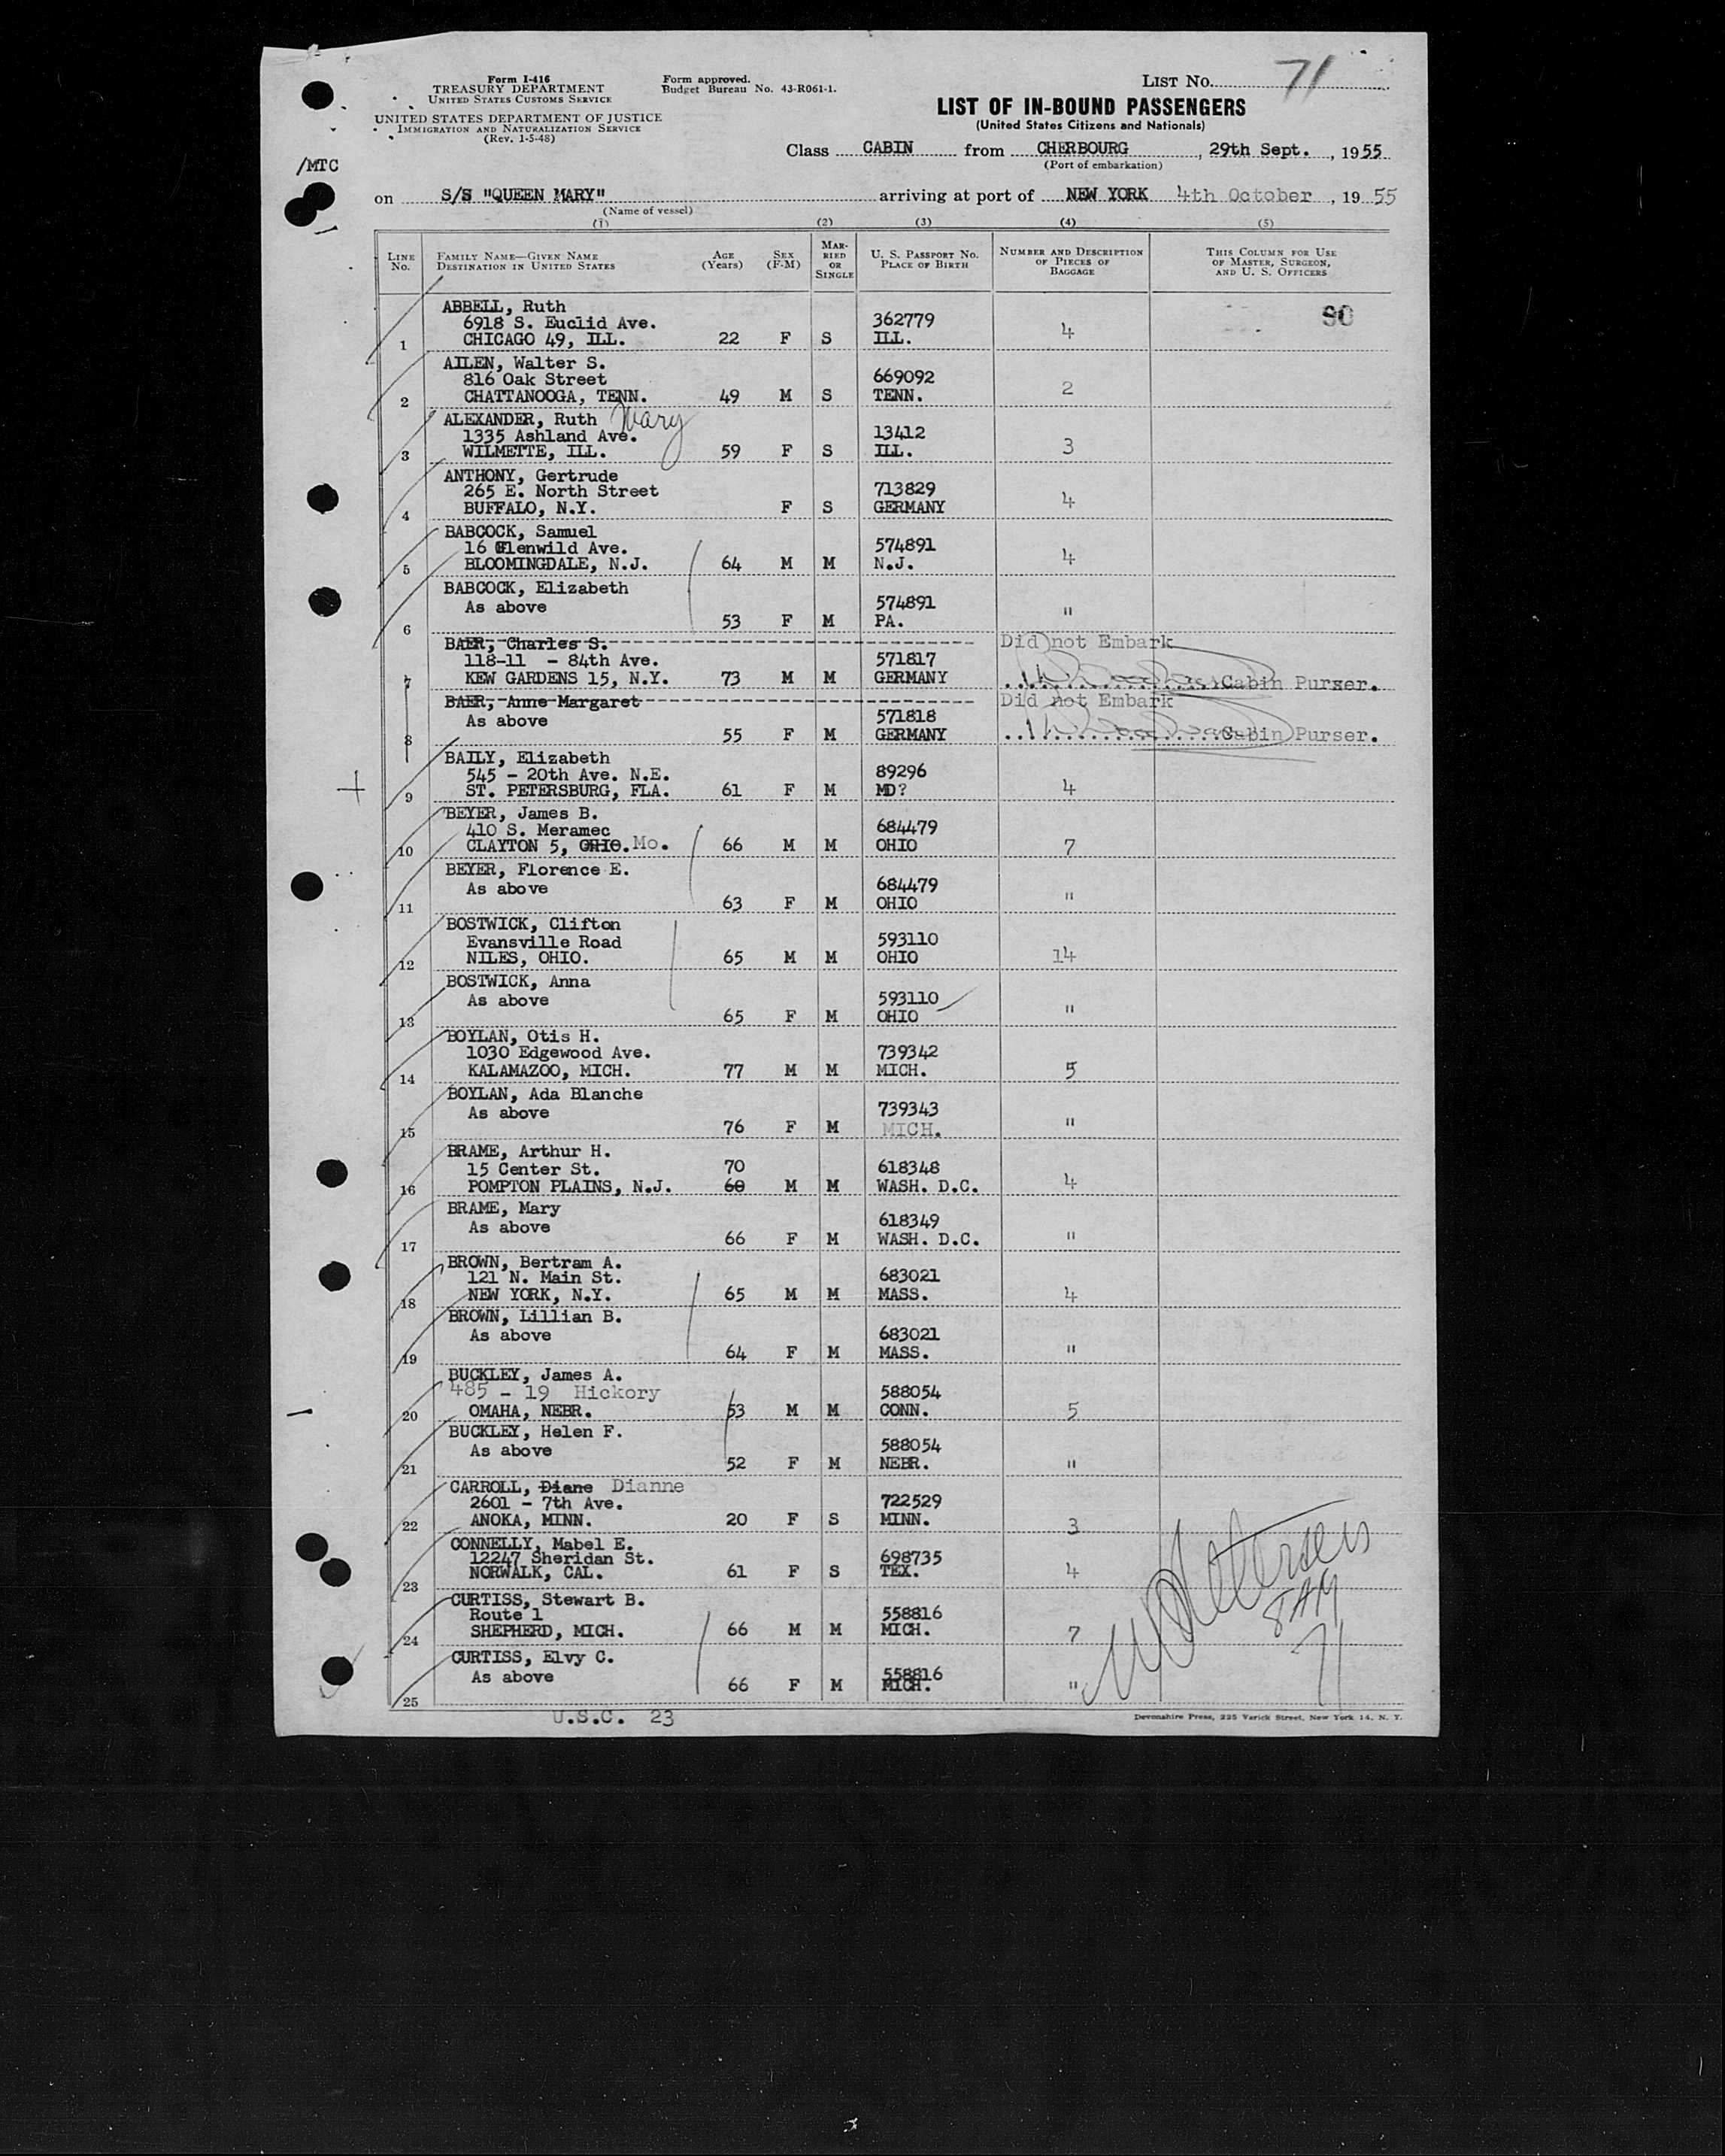 Form I-416
TREASURY DEPARTMENT
UNITED STATES CUSTOMS SERVICE
UNITED STATES DEPARTMENT OF JUSTICE
IMMIGRATION AND NATURALIZATION SERVICE
(Rev. 1-5-48)
Form approved.
Budget Bureau No. 43-R061-1.
LIST No. 71
LIST OF IN-BOUND PASSENGERS
(United States Citizens and Nationals)
/MTC
Class CABIN from CHERBOURG, 29th Sept., 1955
(Port of embarkation)
on S/S "QUEEN MARY" arriving at port of NEW YORK 4th October, 1955
(Name of vessel)
(1) (2) (3) (4) (5)
LINE No. FAMILY NAME—GIVEN NAME DESTINATION IN UNITED STATES AGE (Years) SEX (F-M) MARRIED OR SINGLE U. S. PASSPORT NO. PLACE OF BIRTH NUMBER AND DESCRIPTION OF PIECES OF BAGGAGE THIS COLUMN FOR USE OF MASTER, SURGEON, AND U. S. OFFICERS
90
ABBELL, Ruth
6918 S. Euclid Ave. 362779
1 CHICAGO 49, ILL. 22 F S ILL. 4
AILEN, Walter S.
816 Oak Street 669092
2 CHATTANOOGA, TENN. 49 M S TENN. 2
ALEXANDER, Ruth Mary
1335 Ashland Ave. 13412
3 WILMETTE, ILL. 59 F S ILL. 3
ANTHONY, Gertrude
265 E. North Street 713829
4 BUFFALO, N.Y. F S GERMANY 4
BABCOCK, Samuel
16 Glenwild Ave. 574891
5 BLOOMINGDALE, N.J. 64 M M N.J. 4
BABCOCK, Elizabeth
As above 574891
6 53 F M PA. "
BAER, Charles S. Did not Embark
118-11 - 84th Ave. 571817
7 KEW GARDENS 15, N.Y. 73 M M GERMANY Cabin Purser.
BAER, Anne Margaret Did not Embark
As above 571818
8 55 F M GERMANY Cabin Purser.
BAILY, Elizabeth
545 - 20th Ave. N.E. 89296
9 ST. PETERSBURG, FLA. 61 F M MD? 4
BEYER, James B.
410 S. Meramec 684479
10 CLAYTON 5, OHIO. Mo. 66 M M OHIO 7
BEYER, Florence E.
As above 684479
11 63 F M OHIO "
BOSTWICK, Clifton
Evansville Road 593110
12 NILES, OHIO. 65 M M OHIO 14
BOSTWICK, Anna
As above 593110
13 65 F M OHIO "
BOYLAN, Otis H.
1030 Edgewood Ave. 739342
14 KALAMAZOO, MICH. 77 M M MICH. 5
BOYLAN, Ada Blanche
As above 739343
15 76 F M MICH. "
BRAME, Arthur H.
15 Center St. 70 618348
16 POMPTON PLAINS, N.J. 60 M M WASH. D.C. 4
BRAME, Mary
As above 618349
17 66 F M WASH. D.C. "
BROWN, Bertram A.
121 N. Main St. 683021
18 NEW YORK, N.Y. 65 M M MASS. 4
BROWN, Lillian B.
As above 683021
19 64 F M MASS. "
BUCKLEY, James A.
485 - 19 Hickory 588054
20 OMAHA, NEBR. 53 M M CONN. 5
BUCKLEY, Helen F.
As above 588054
21 52 F M NEBR. "
CARROLL, Diane Dianne
2601 - 7th Ave. 722529
22 ANOKA, MINN. 20 F S MINN. 3
CONNELLY, Mabel E.
12247 Sheridan St. 698735
23 NORWALK, CAL. 61 F S TEX. 4
CURTISS, Stewart B.
Route 1 558816
24 SHEPHERD, MICH. 66 M M MICH. 7
CURTISS, Elvy C.
As above 558816
25 66 F M MICH. "
8 AM
71
U.S.C. 23
Devonshire Press, 225 Varick Street, New York 14, N. Y.